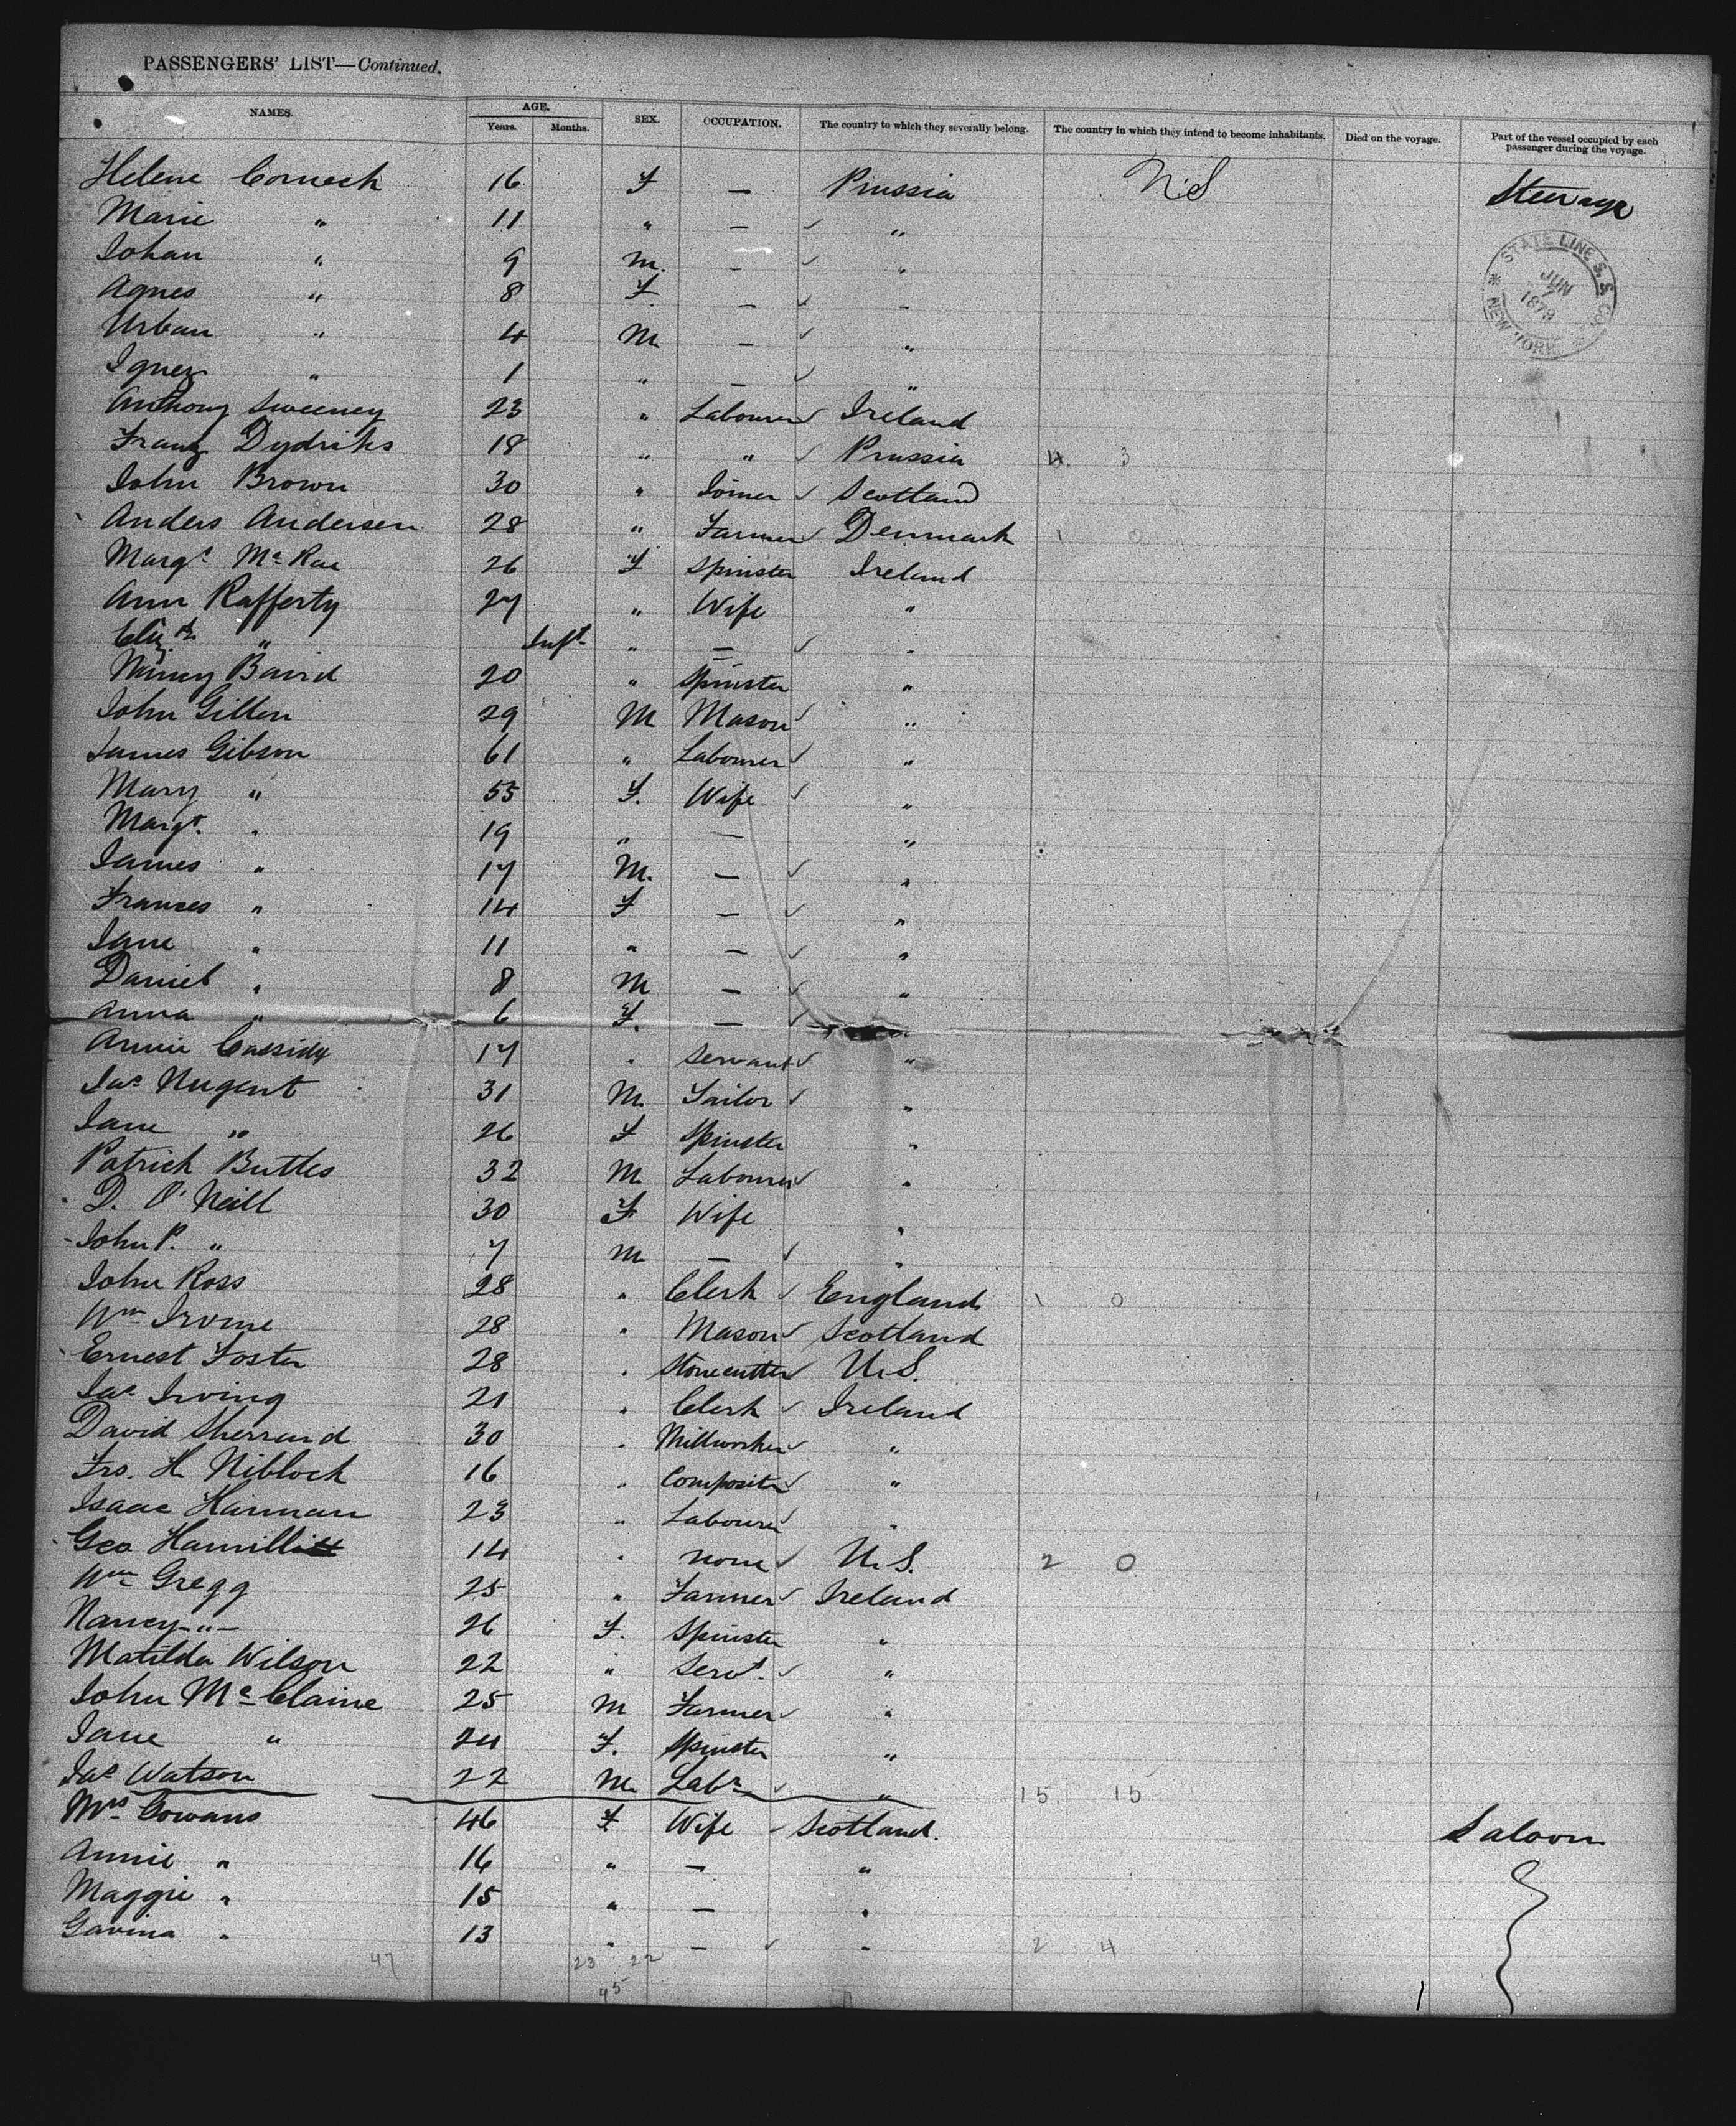 PASSENGERS' LIST—Continued.
NAMES. AGE. SEX. OCCUPATION. The country to which they severally belong. The country in which they intend to become inhabitants. Died on the voyage. Part of the vessel occupied by each passenger during the voyage.
Years. Months.
Helene Cornech 16 F — Prussia U.S Steerage
Marie " 11 " — "
Johan " 9 M. — "
Agnes " 8 F. — "
Urban " 4 M — "
Ignez " 1 " — "
STATE LINE S.S. CO. NEW YORK JUN 7 1879
Anthony Sweeney 23 " Labourer Ireland
Franz Dydriks 18 " " Prussia 4. 3
John Brown 30 " Joiner Scotland
Anders Andersen 28 " Farmer Denmark 1 0
Margt. McRae 26 F Spinster Ireland
Ann Rafferty 27 " Wife "
Elizth " Inft. " — "
Nancy Baird 20 " Spinster "
John Gillen 29 M Mason "
James Gibson 61 " Labourer "
Mary " 55 F. Wife "
Margt. " 19 " — "
James " 17 M. — "
Frances " 14 F — "
Jane " 11 " — "
Daniel " 8 M — "
Anna " 6 F. — "
Annie Cassidy 17 " Servant "
Jas Nugent 31 M. Tailor "
Jane " 26 F Spinster "
Patrick Buttles 32 M Labourer "
D. O'Neill 30 F Wife "
John P. " 7 M — "
John Ross 28 " Clerk England 1 0
Wm Irvine 28 " Mason Scotland
Ernest Foster 28 " Stonecutter U.S.
Jas Irving 21 " Clerk Ireland
David Sherrard 30 " Millworker "
Frs. H. Niblock 16 " Compositor "
Isaac Hanman 23 " Labourer "
Geo Hamill 14 " none U.S. 2 0
Wm Gregg 25 " Farmer Ireland
Nancy -"- 26 F. Spinster "
Matilda Wilson 22 " Servt. "
John McClaine 25 M Farmer "
Jane " 24 F. Spinster "
Jas Watson 22 M. Labr " 15. 15
Mrs Cowans 46 F. Wife Scotland. Saloon
Annie " 16 " — "
Maggie " 15 " — "
Gavina " 13 " — " 2 4
47 23 22
45
1